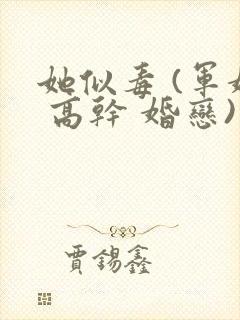 她似毒(軍
高幹 婚戀)
賈錫鑫